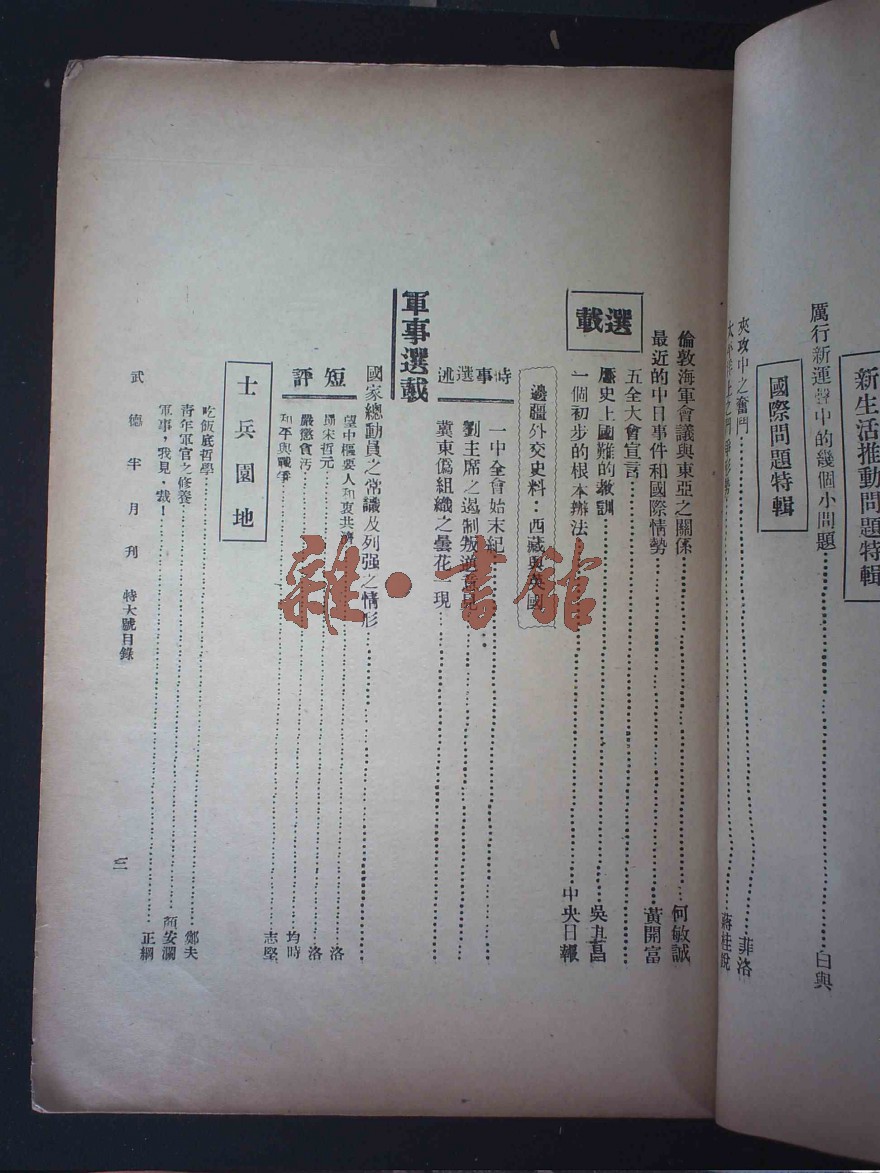 新生活推動問題特輯
厲行新運聲中的幾個小問題 白與
國際問題特輯
夾攻中之奮鬥 菲洛
蔣桂說
倫敦海軍會議與東亞之關係 何敏誠
最近的中日事件和國際情勢 黃開富
選載
五全大會宣言
歷史上國難的教訓 吳丑昌
一個初步的根本辦法 中央日報
邊疆外交史料：西藏與英國
時事選述
一中全會始末紀
劉主席之遏制叛逆意見
冀東僞組織之曇花一現
軍事選載
國家總動員之常識及列强之情形
短評
望中樞要人和衷共濟 洛
勗宋哲元 洛
嚴懲貪污 均時
和平與戰爭 志堅
士兵園地
吃飯底哲學 鄭夫
青年軍官之修養 顏安瀾
軍事，我見，哉！ 正綱
武德半月刊 特大號目錄
三
雜·書館